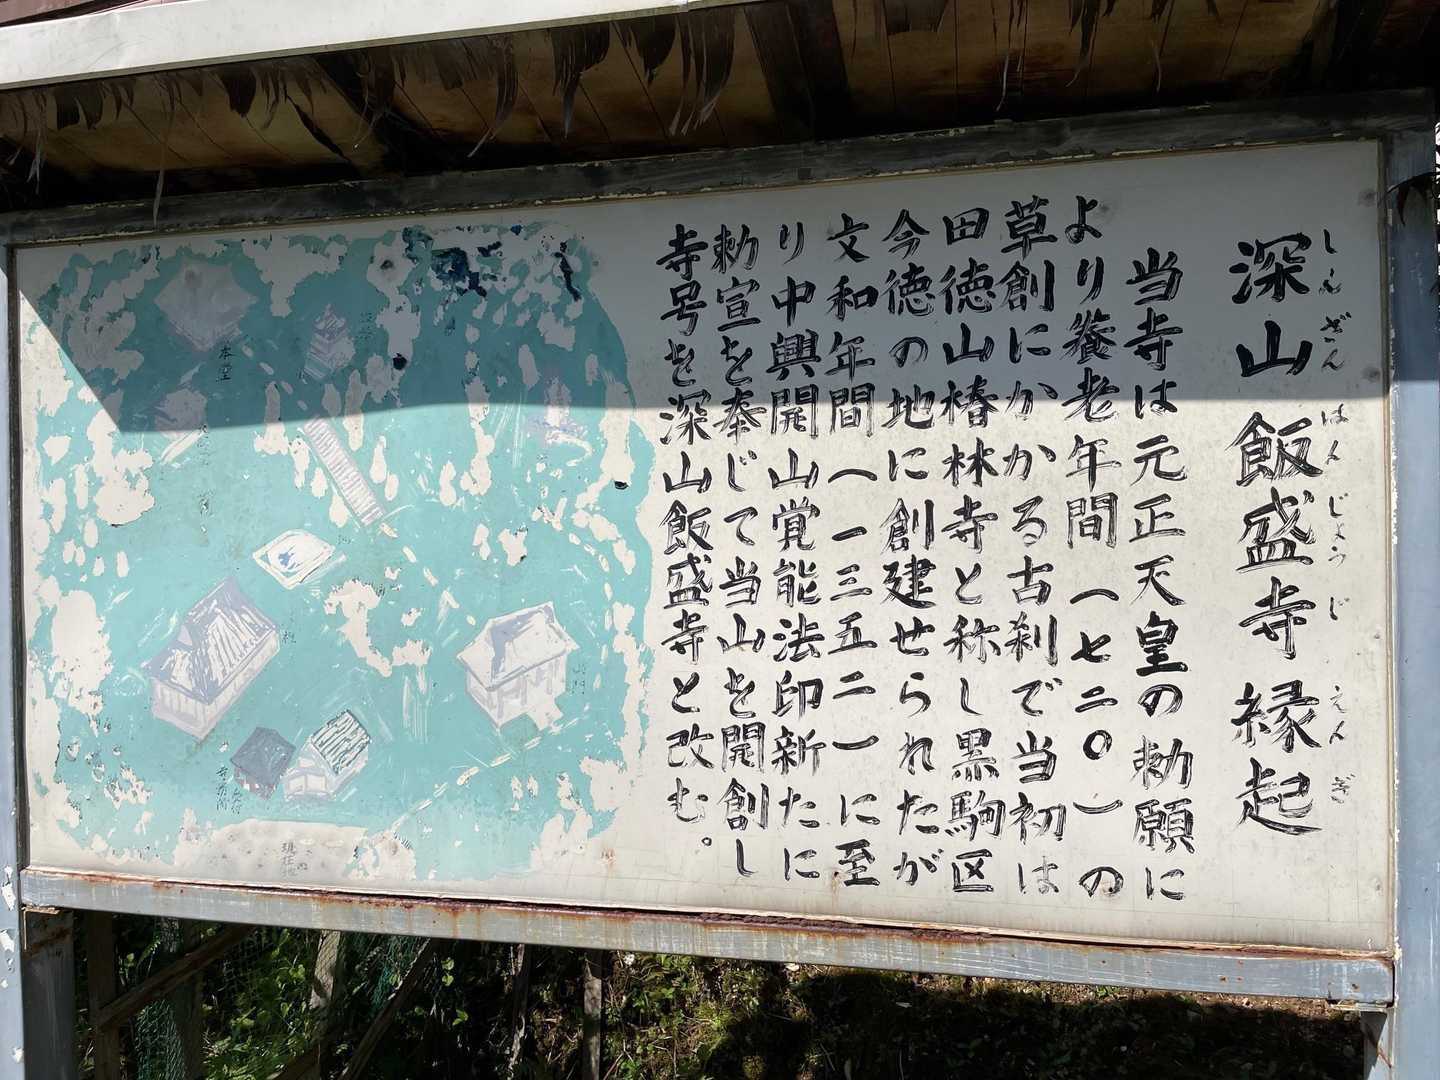 深山飯盛寺縁起
しんざんはんじょうじえんぎ
当寺は元正天皇の勅願に
より養老年間(七二〇)の
草創にかかる古刹で当初は
田徳山椿林寺と称し黒駒区
今徳の地に創建せられたが
文和年間(一三五二)に至
り中興開山覚能法印新たに
勅宣を奉じて当山を開創し
寺号を深山飯盛寺と改む。
本堂
山門
現在地